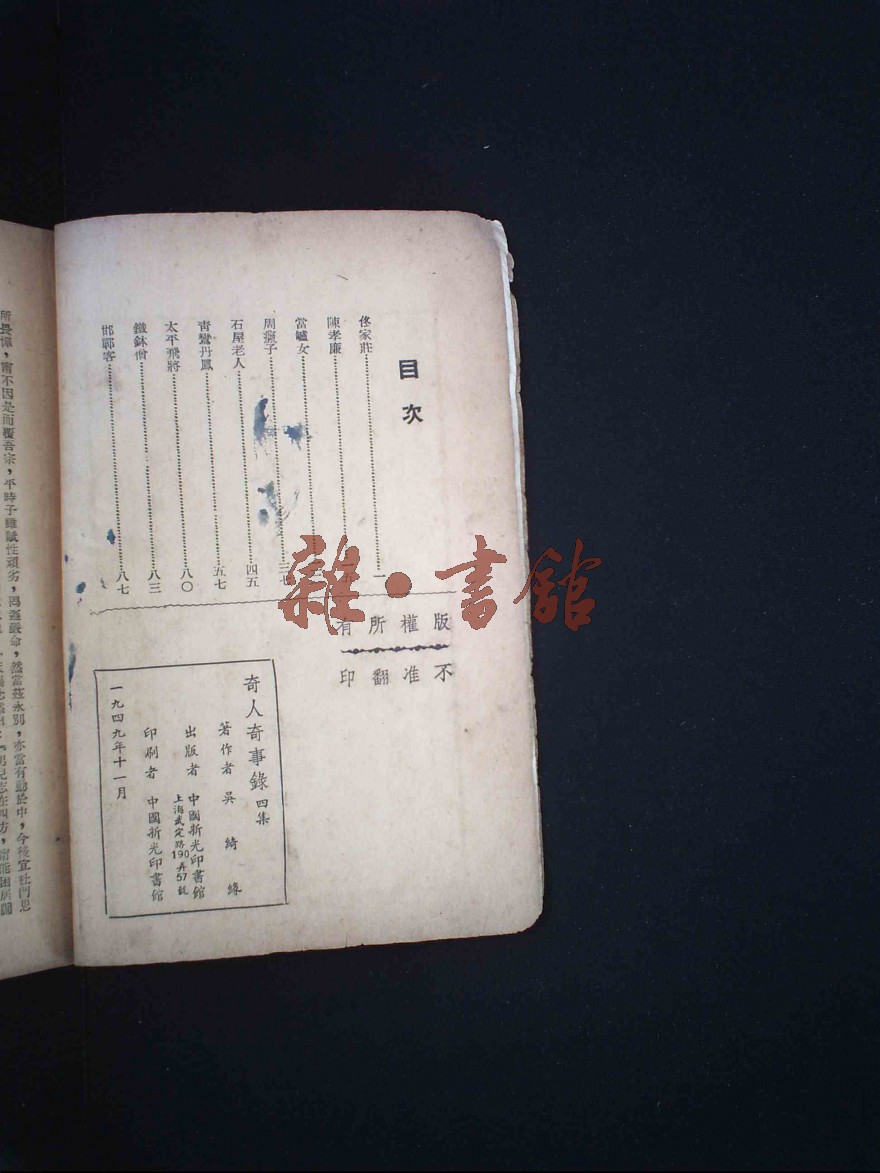 目次
佟家莊……一
陳孝廉
當罏女
周癲子……三七
石屋老人……四五
青鸞丹鳳……五七
太平飛將……八〇
鐵鉢僧……八三
邯鄲客……八七
版權所有
不准翻印
奇人奇事錄 四集
著作者 吳綺緣
出版者 中國折光印書館
上海武定路190弄57號
印刷者 中國折光印書館
一九四九年十一月
雜·書館
而不因是而覆吾宗，平時子雖賦性頑劣，罔遵嚴命，然當茲永別，亦當有動於中，今後宜杜門思